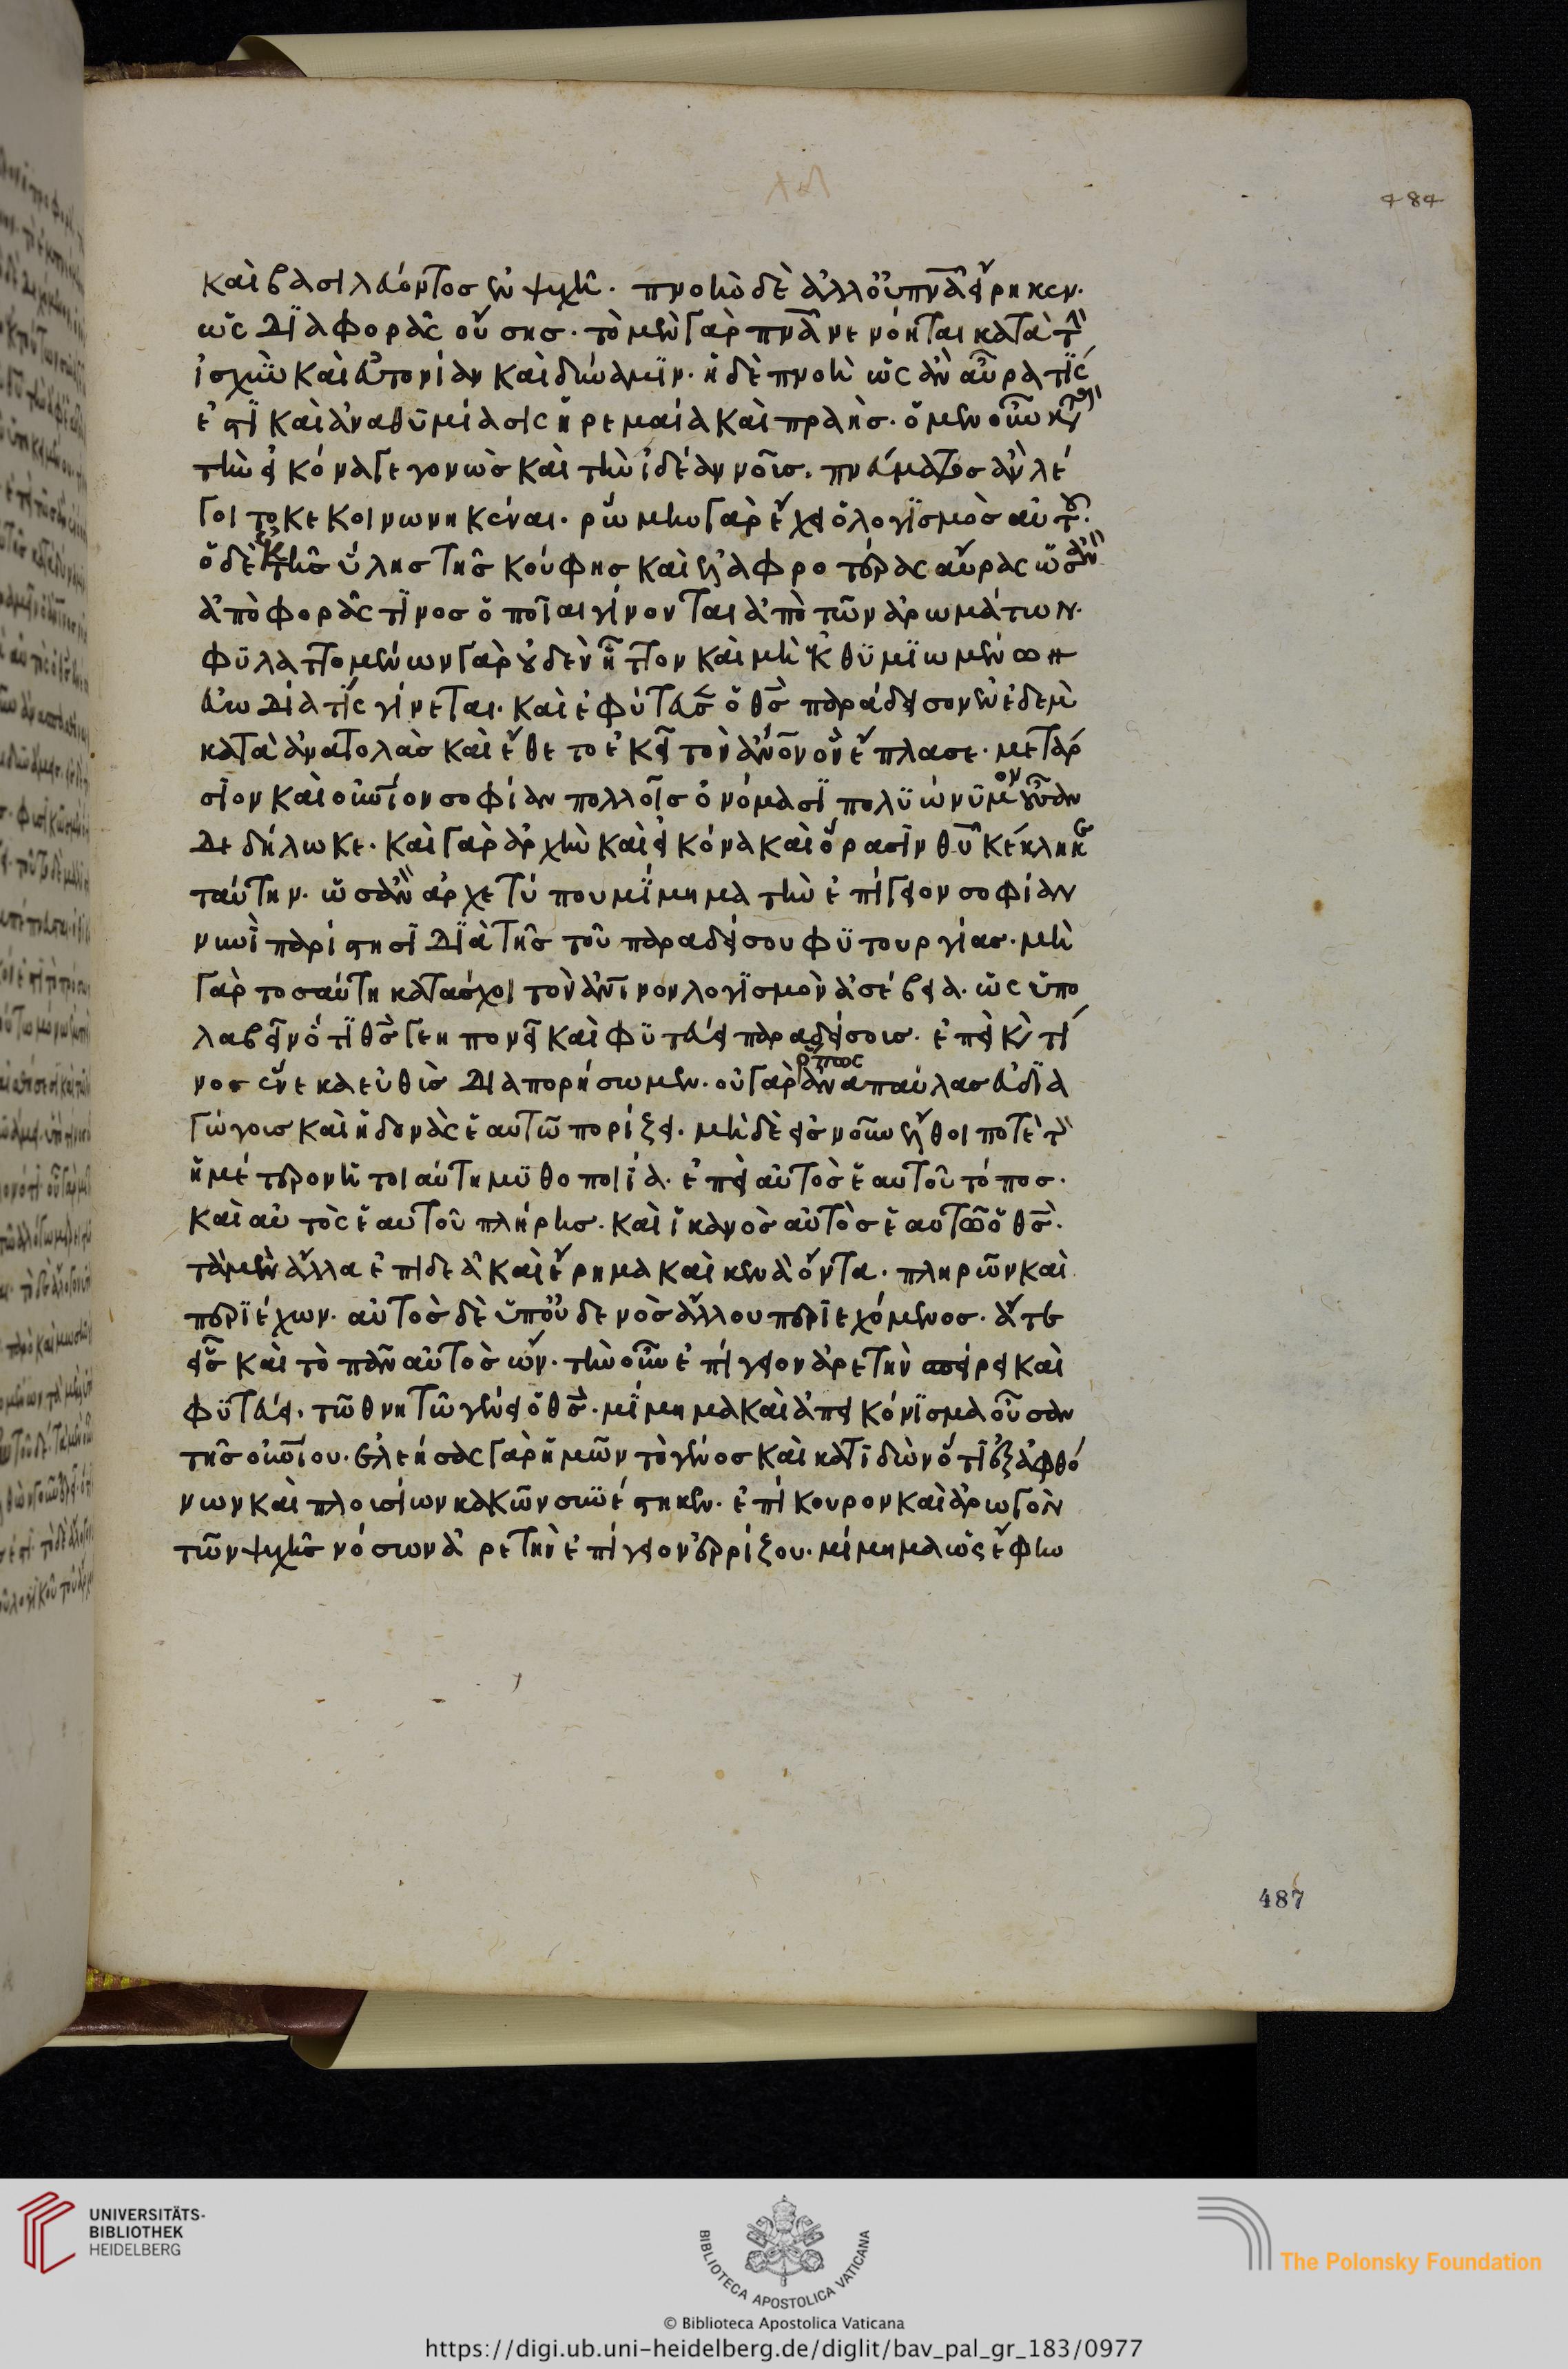 καὶ βασιλεύοντος ἐν ψυχῆ. πνοὴν δὲ ἀλλ' οὐ πνᾶ εἴρηκεν.
ὡς διαφορᾶς οὔσης. τὸ μὲν γὰρ πνᾶ νενόηται κατὰ τὴν
ἰσχὺν καὶ εὐτονίαν καὶ δύναμϊν. ἡ δὲ πνοὴ ὡς ἂν αὖρα τϊς
ἐστϊ καὶ ἀναθϋμίασις ἠρεμαία καὶ πραῆς. ὁ μὲν οὖν κατὰ
τὴν εἰκόνα γεγονὼς καὶ τὴν ἰδέαν νοῦς. πνεύματος ἂν λέ
γοιτο κεκοινωνηκέναι. ῥώμην γὰρ ἔχει ὁ λογϊσμὸς αὐτοῦ.
ὁ δὲ ἐκ τῆς ὕλης τῆς κούφης καὶ ἐλαφροτέρας αὔρας ὡσὰν
ἀποφορᾶς τϊνος ὁποῖαι γίνονται ἀπὸ τῶν ἀρωμάτων.
φϋλαττομένων γὰρ οὐδὲν ἧττον καὶ μὴ ἐκθϋμϊωμένων
εὐωδία τϊς γίνεται. καὶ ἐφύτευσεν ὁ θς παράδεισον ἐν ἐδὲμ
κατὰ ἀνατολὰς καὶ ἔθετο ἐκεῖ τὸν ἄνον ὃν ἔπλασε. μετάρ
σϊον καὶ οὐράνϊον σοφίαν πολλοῖς ὀνόμασϊ πολϋώνϋμον οὖσαν
δεδήλωκε. καὶ γὰρ ἀρχὴν καὶ εἰκόνα καὶ ὅρασϊν θυ κέκληκε
ταύτην. ὡσὰν ἀρχετύπου μϊμημα τὴν ἐπίγειον σοφίαν
νυνῒ παρίστησϊ δϊὰ τῆς τοῦ παραδείσου φϋτουργίας. μὴ
γὰρ τοσαύτη κατάσχοι τὸν ἀνϊνον λογϊσμὸν ἀσέβεια. ὡς ὑπο
λαβεῖν ὅτϊ θς γεηπονεῖ καὶ φϋτεύει παραδείσοις. ἐπεὶ καὶ τί
νος ἕνεκα εὐθὺς διαπορήσωμεν. οὐ γὰρ ὅπως ἀναπαύλας εὐδϊα
γώγοις καὶ ἡδονὰς ἑαυτῶ πορίξει. μὴ δὲ εἰς νοῦν ἔλθοι ποτὲ τὸν
ἡμέτερον ἡ τοιαύτη μϋθοποιΐα. ἐπεὶ αὐτὸς ἑαυτοῦ τόπος.
καὶ αὐτὸς ἑαυτοῦ πλήρης. καὶ ἱκανὸς αὐτὸς ἑαυτῶ ὁ θς.
τὰ μὲν ἄλλα ἐπιδεᾶ καὶ ἔρημα καὶ κενὰ ὄντα. πληρῶν καὶ
περϊέχων. αὐτὸς δὲ ὑπ' οὐδενὸς ἄλλου περϊεχόμενος. ἅτε
εἷς καὶ τὸ πᾶν αὐτὸς ὤν. τὴν οὖν ἐπίγειον ἀρετὴν σπείρει καὶ
φϋτεύει. τῶ θνητῶ γένει ὁ θς. μϊμημα καὶ ἀπεικόνϊσμα οὖσαν
τῆς οὐρανίου. ἐλεήσας γὰρ ἡμῶν τὸ γένος καὶ κατϊδὼν ὅτϊ ἐξ ἀφθό
νων καὶ πλουσίων κακῶν συνέστηκεν. ἐπίκουρον καὶ ἀρωγὸν
τῶν ψυχῆς νόσων ἀρετὴν ἐπίγειον ἐρρίζου. μίμημα ὡς ἔφην
484
487
UNIVERSITÄTS-
BIBLIOTHEK
HEIDELBERG
BIBLIOTECA APOSTOLICA VATICANA
The Polonsky Foundation
© Biblioteca Apostolica Vaticana
https://digi.ub.uni-heidelberg.de/diglit/bav_pal_gr_183/0977